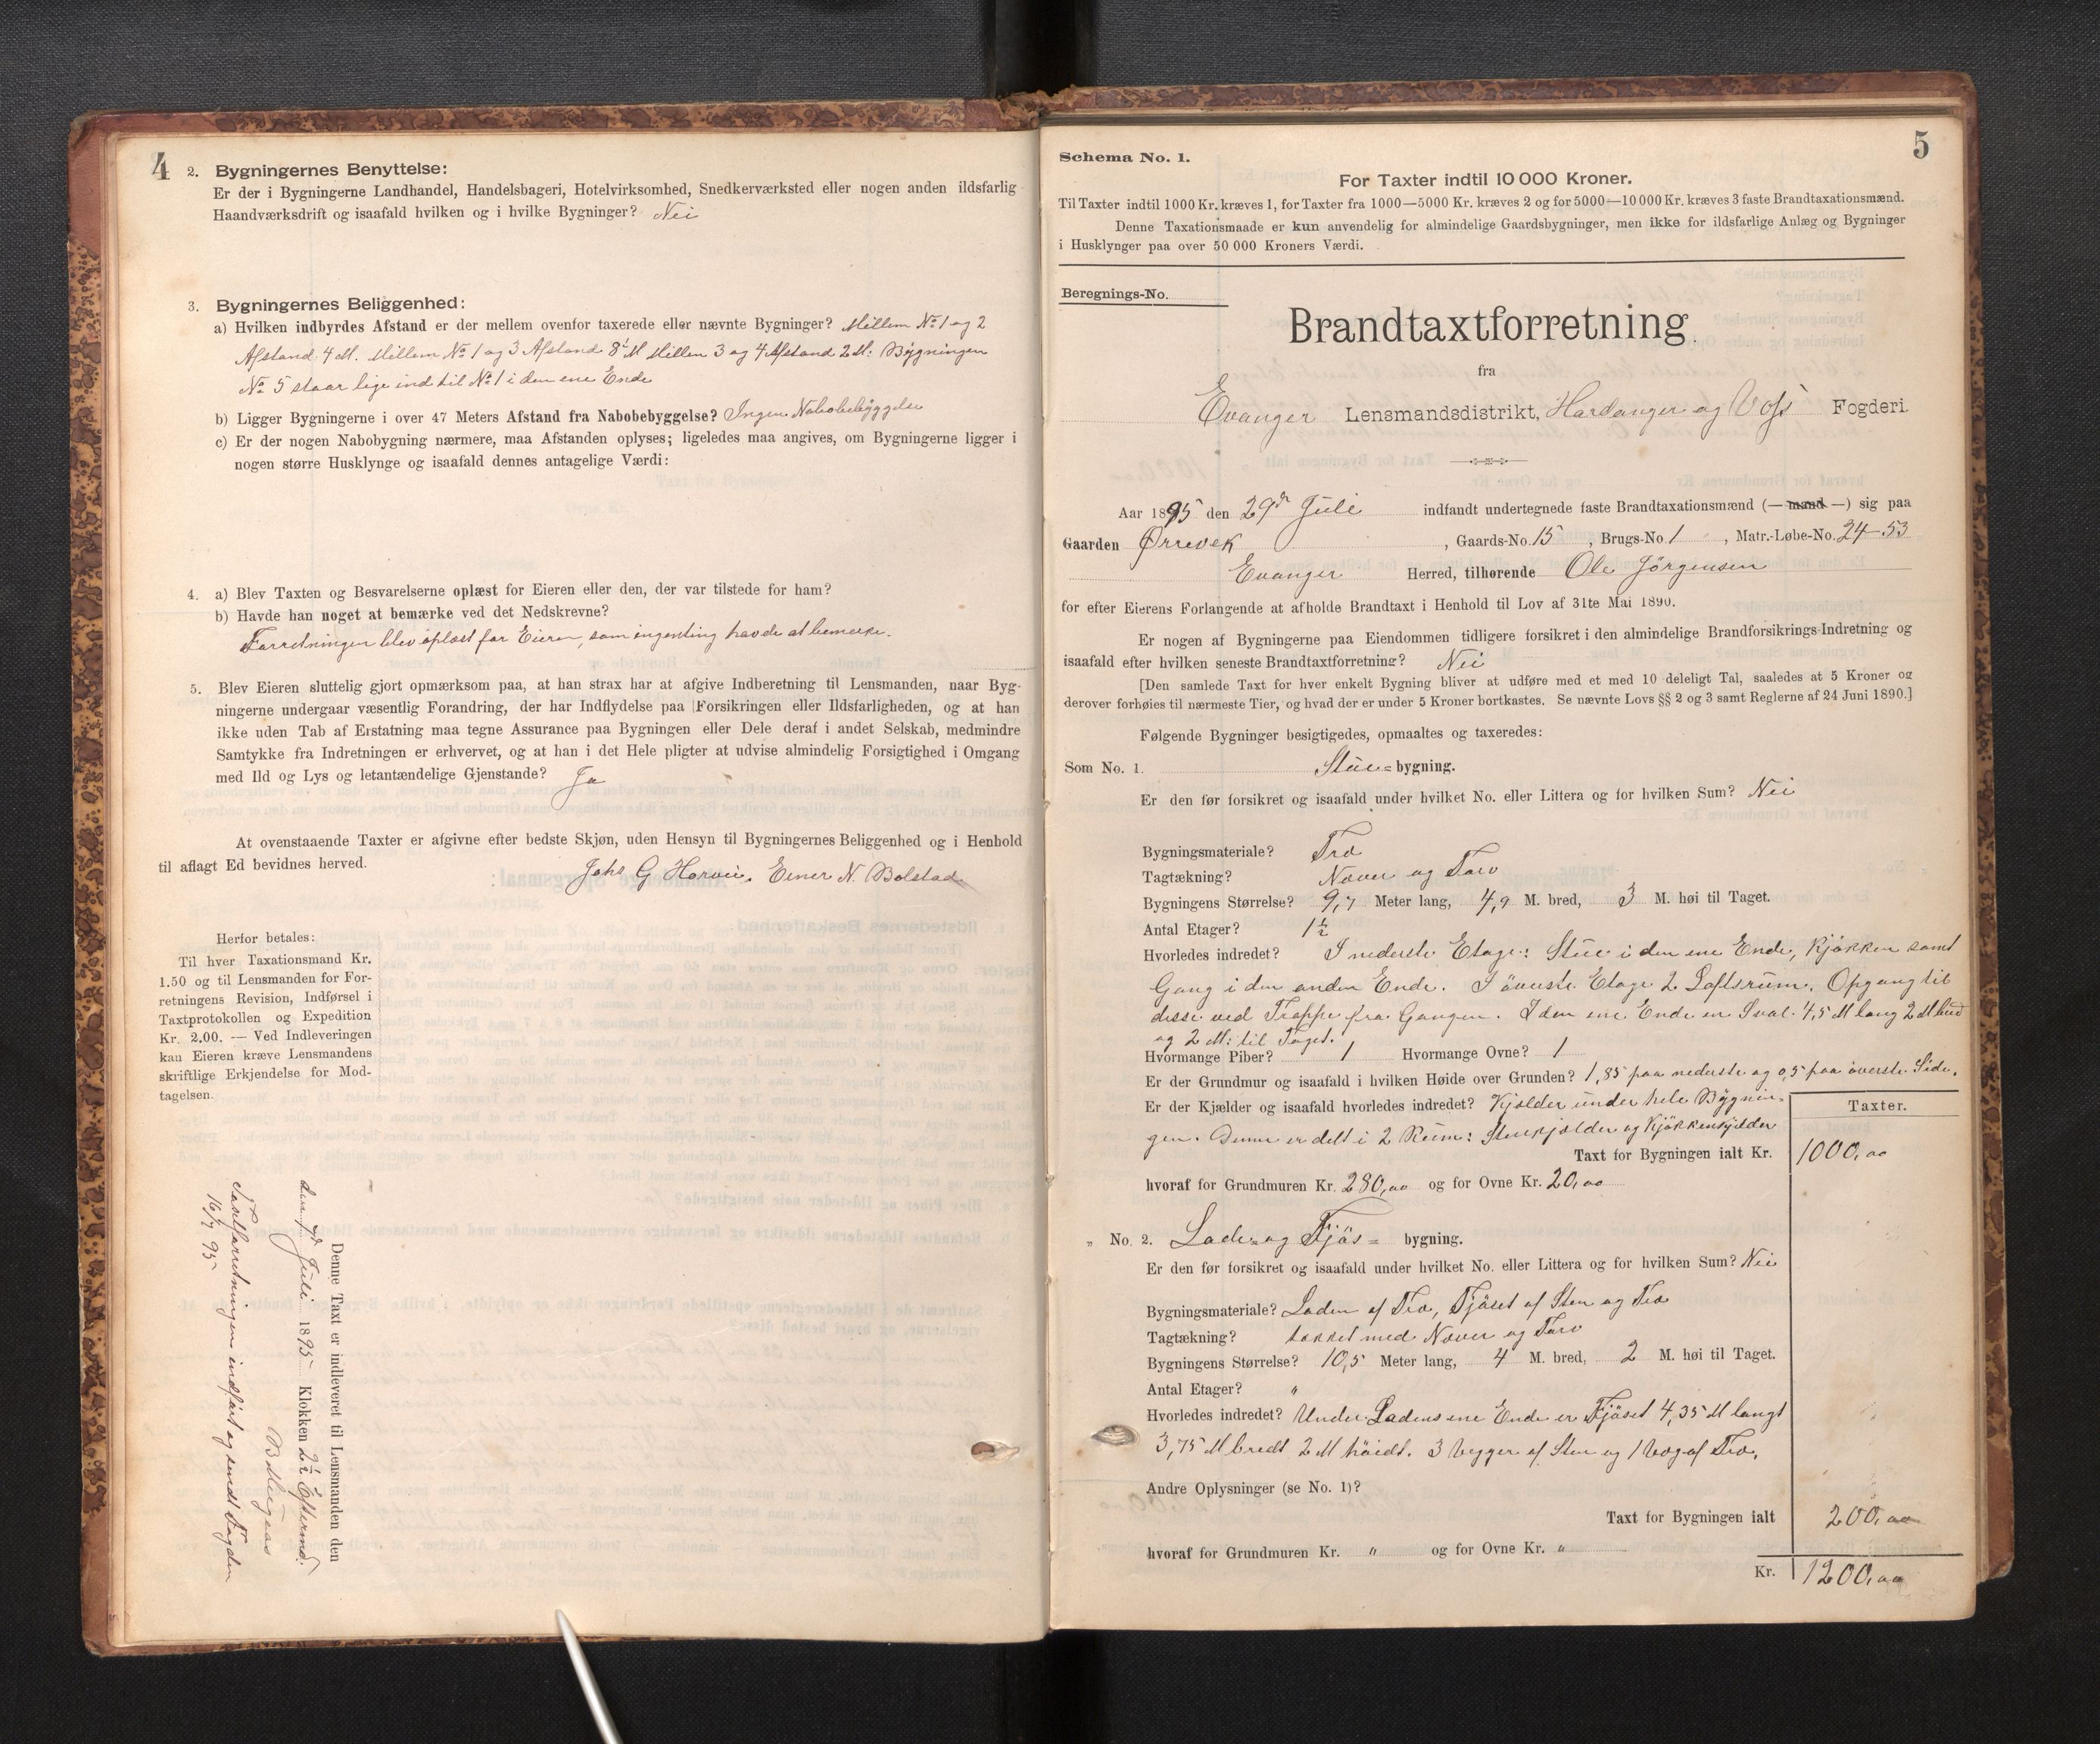 4
2. Bygningernes Benyttelse:
Er der i Bygningerne Landhandel, Handelsbageri, Hotelvirksomhed, Snedkerværksted eller nogen anden ildsfarlig
Haandværksdrift og isaafald hvilken og i hvilke Bygninger? Nei
3. Bygningernes Beliggenhed:
a) Hvilken indbyrdes Afstand er der mellem ovenfor taxerede eller nævnte Bygninger? Mellem No 1 og 2
Afstand 4 M. Mellem No 1 og 3 Afstand 8 M Mellem 3 og 4 Afstand 2 M: Bygningen
No 5 staar lige ind til No 1 i den ene Ende
b) Ligger Bygningerne i over 47 Meters Afstand fra Nabobebyggelse? Ingen Nabobebyggelse
c) Er der nogen Nabobygning nærmere, maa Afstanden oplyses; ligeledes maa angives, om Bygningerne ligger i
nogen større Husklynge og isaafald dennes antagelige Værdi:
4. a) Blev Taxten og Besvarelserne oplæst for Eieren eller den, der var tilstede for ham?
b) Havde han noget at bemærke ved det Nedskrevne?
Forretningen blev oplæst for Eieren, som ingenting havde at bemærke.
5. Blev Eieren sluttelig gjort opmærksom paa, at han strax har at afgive Indberetning til Lensmanden, naar Byg-
ningerne undergaar væsentlig Forandring, der har Indflydelse paa Forsikringen eller Ildsfarligheden, og at han
ikke uden Tab af Erstatning maa tegne Assurance paa Bygningen eller Dele deraf i andet Selskab, medmindre
Samtykke fra Indretningen er erhvervet, og at han i det Hele pligter at udvise almindelig Forsigtighed i Omgang
med Ild og Lys og letantændelige Gjenstande? Ja
At ovenstaaende Taxter er afgivne efter bedste Skjøn, uden Hensyn til Bygningernes Beliggenhed og i Henhold
til aflagt Ed bevidnes herved.
Johs G Horvei. Einer N. Bolstad
Herfor betales:
Til hver Taxationsmand Kr.
1.50 og til Lensmanden for For-
retningens Revision, Indførsel i
Taxtprotokollen og Expedition
Kr. 2.00. — Ved Indleveringen
kan Eieren kræve Lensmandens
skriftlige Erkjendelse for Mod-
tagelsen.
Denne Taxt er indleveret til Lensmanden den
Juli 1895 Klokken 2½ Eftermd.
Taxtforretningen indført og sendt Fogden
16/7 95
5
Schema No. 1.
For Taxter indtil 10 000 Kroner.
Til Taxter indtil 1000 Kr. kræves 1, for Taxter fra 1000—5000 Kr. kræves 2 og for 5000—10 000 Kr. kræves 3 faste Brandtaxationsmænd.
Denne Taxationsmaade er kun anvendelig for almindelige Gaardsbygninger, men ikke for ildsfarlige Anlæg og Bygninger
i Husklynger paa over 50 000 Kroners Værdi.
Beregnings-No.
Brandtaxtforretning
fra
Evanger Lensmandsdistrikt, Hardanger og Voss Fogderi.
Aar 1895 den 29de Juli indfandt undertegnede faste Brandtaxationsmænd (— mand —) sig paa
Gaarden Ørrevek, Gaards-No. 15, Brugs-No 1, Matr.-Løbe-No. 24-53
Evanger Herred, tilhørende Ole Jörgensen
for efter Eierens Forlangende at afholde Brandtaxt i Henhold til Lov af 31te Mai 1890.
Er nogen af Bygningerne paa Eiendommen tidligere forsikret i den almindelige Brandforsikrings-Indretning og
isaafald efter hvilken seneste Brandtaxtforretning? Nei
[Den samlede Taxt for hver enkelt Bygning bliver at udføre med et med 10 deleligt Tal, saaledes at 5 Kroner og
derover forhøies til nærmeste Tier, og hvad der er under 5 Kroner bortkastes. Se nævnte Lovs §§ 2 og 3 samt Reglerne af 24 Juni 1890.]
Følgende Bygninger besigtigedes, opmaaltes og taxeredes:
Som No. 1. Stue= bygning.
Er den før forsikret og isaafald under hvilket No. eller Littera og for hvilken Sum? Nei
Bygningsmateriale? Træ
Tagtækning? Næver og Tørv
Bygningens Størrelse? 9,7 Meter lang, 4,9 M. bred, 3 M. høi til Taget.
Antal Etager? 1½
Hvorledes indredet? I nederste Etage: Stue i den ene Ende, Kjøkken samt
Gang i den anden Ende. I överste Etage 2 Loftsrum. Opgang til
disse ved Trappe fra Gangen. I den ene Ende en Sval 4,5 M lang 2 M bred
og 2 M: til Taget.
Hvormange Piber? 1 Hvormange Ovne? 1
Er der Grundmur og isaafald i hvilken Høide over Grunden? 1,85 paa nederste og 0,5 paa överste Side.
Er der Kjælder og isaafald hvorledes indredet? Kjælder under hele Bygnin-
gen. Denne er delt i 2 Rum: Stuekjælder og Kjøkkenkjælder
Taxter.
Taxt for Bygningen ialt Kr. 1000,00
hvoraf for Grundmuren Kr. 280,00 og for Ovne Kr. 20,00
„ No. 2. Lade= og Fjös= bygning.
Er den før forsikret og isaafald under hvilket No. eller Littera og for hvilken Sum? Nei
Bygningsmateriale? Laden af Træ, Fjöset af Sten og Træ
Tagtækning? tækket med Næver og Tørv
Bygningens Størrelse? 10,5 Meter lang, 4 M. bred, 2 M. høi til Taget.
Antal Etager? "
Hvorledes indredet? Under Ladens ene Ende er Fjöset 4,35 M langt
3,75 M bredt 2 M höidt. 3 Vægger af Sten og 1 Væg af Træ.
Andre Oplysninger (se No. 1)?
Taxt for Bygningen ialt 200,00
hvoraf for Grundmuren Kr. " og for Ovne Kr. "
Kr. 1200,00